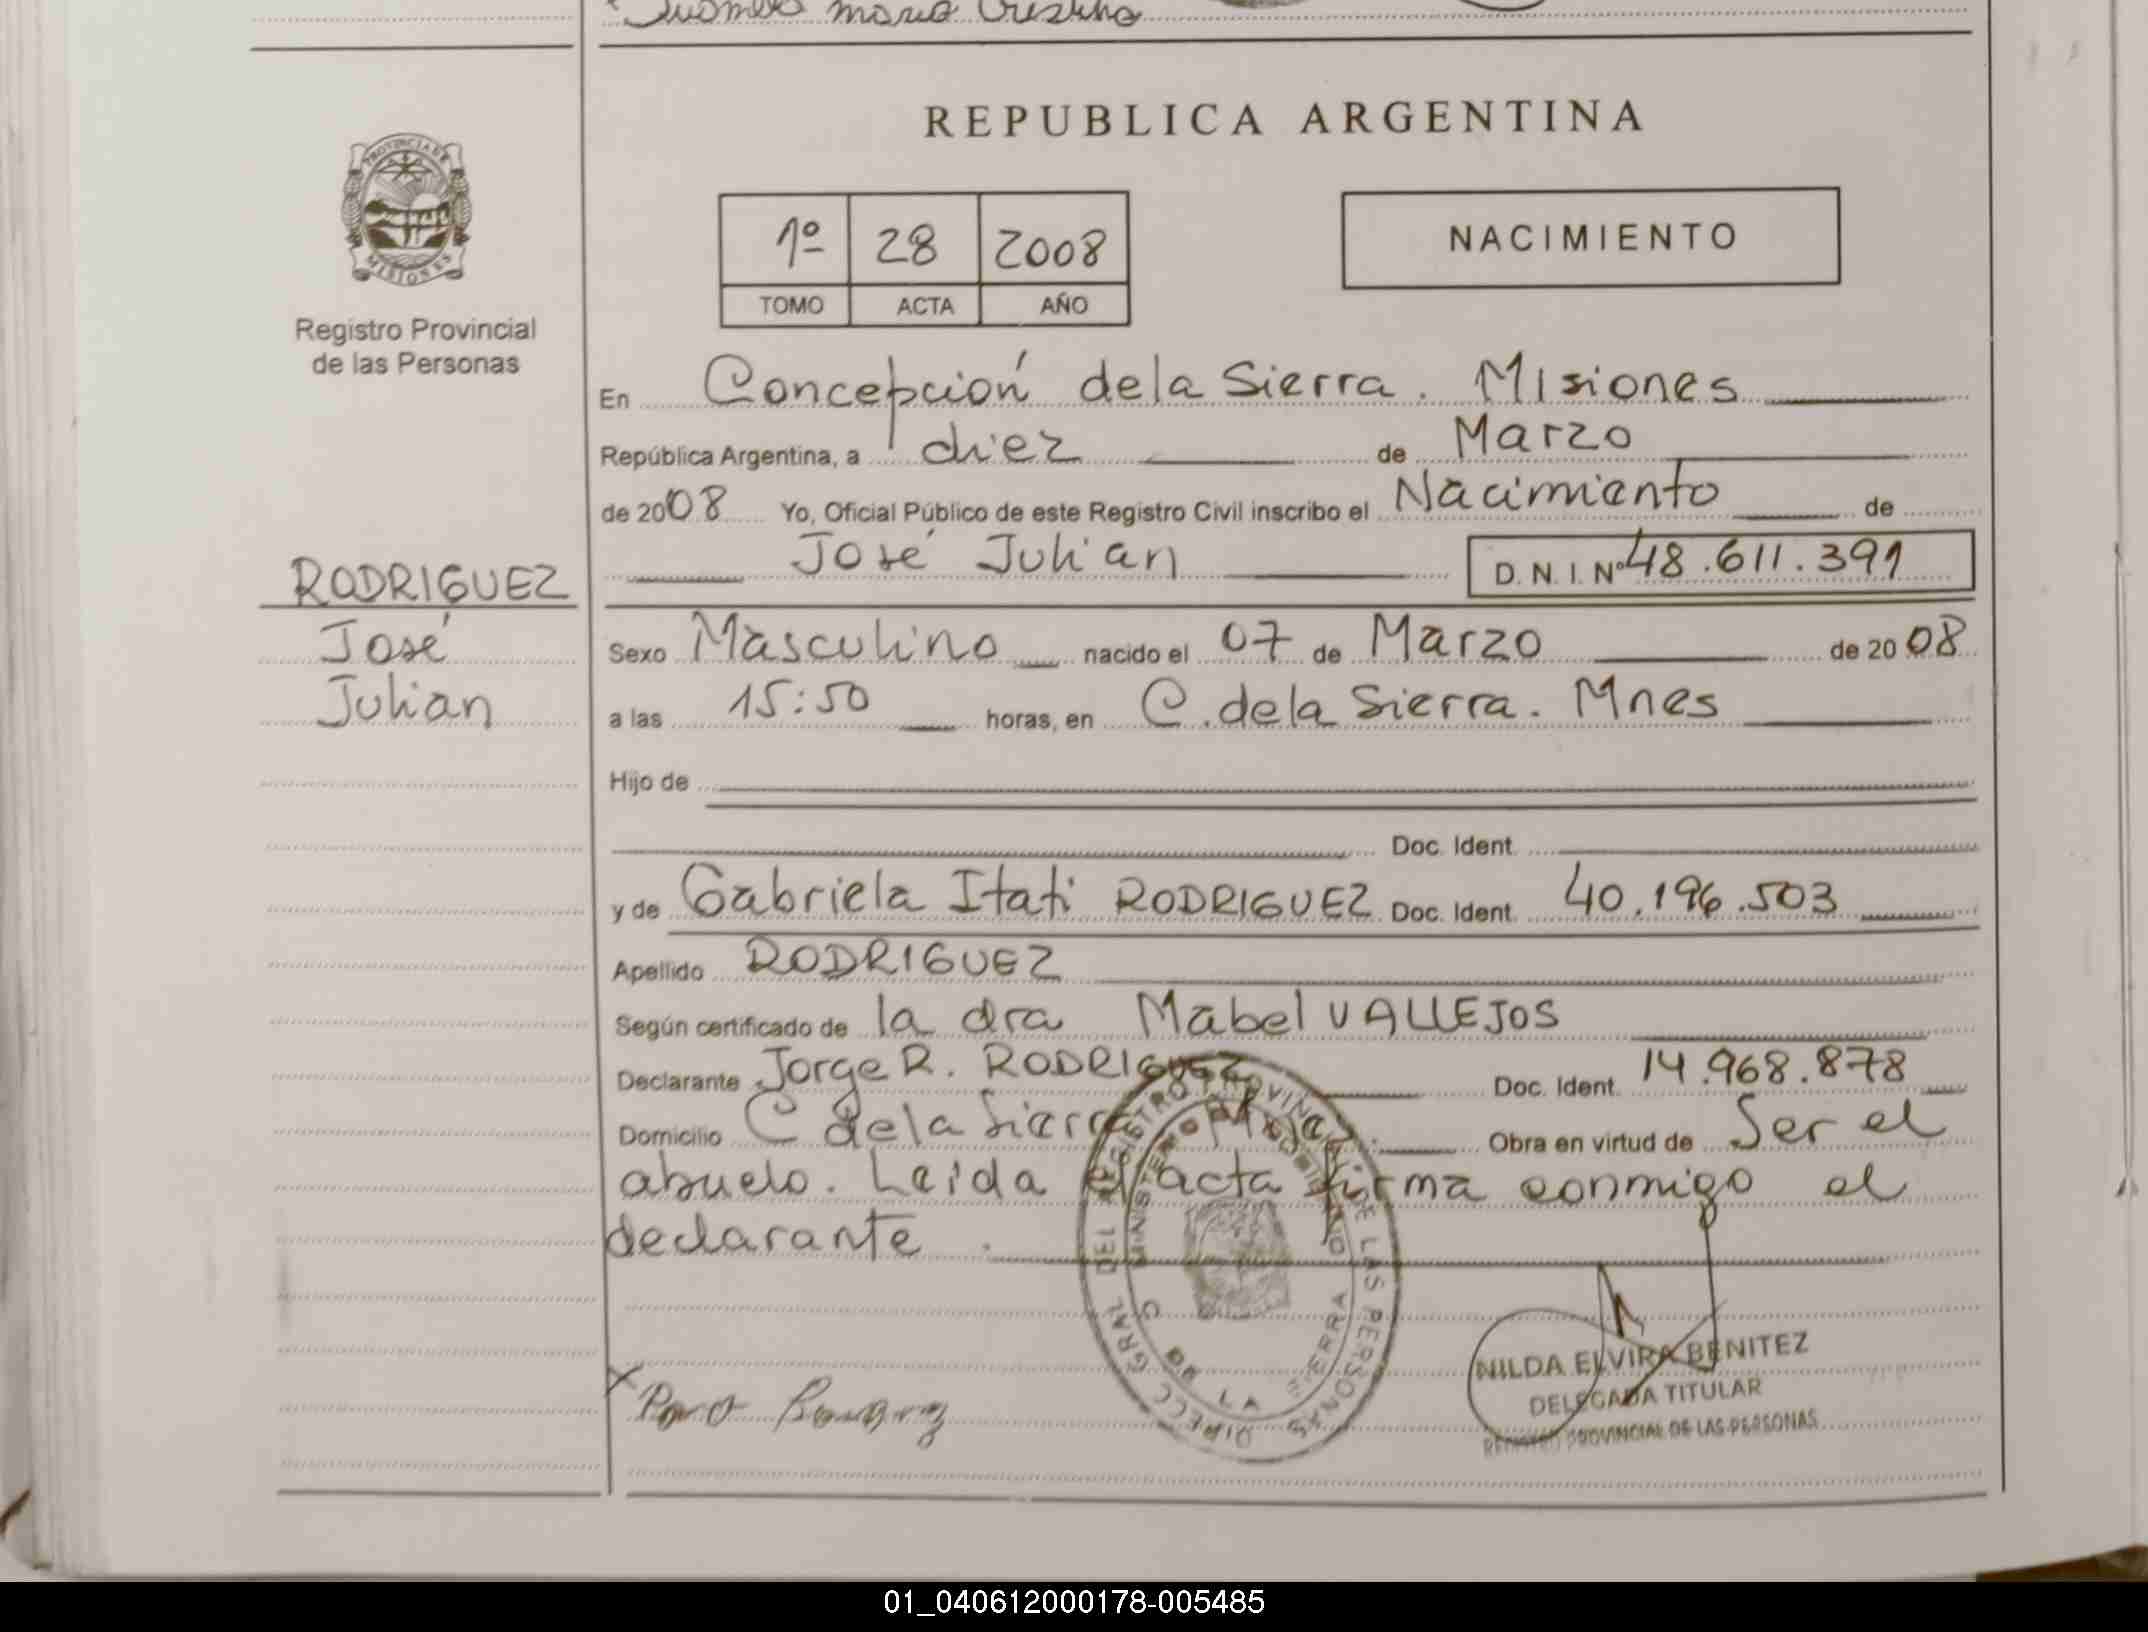 Maria Cristina
REPUBLICA ARGENTINA
PROVINCIA DE
MISIONES
Registro Provincial
de las Personas
1º 28 2008
TOMO ACTA AÑO
NACIMIENTO
En Concepción de la Sierra. Misiones
República Argentina, a diez de Marzo
de 2008 Yo, Oficial Público de este Registro Civil inscribo el Nacimiento de
José Julian D. N. I. Nº 48.611.391
RODRIGUEZ
José
Julian
Sexo Masculino nacido el 07 de Marzo de 2008
a las 15:50 horas, en C. de la Sierra. Mnes
Hijo de
Doc. Ident.
y de Gabriela Itati RODRIGUEZ Doc. Ident. 40.196.503
Apellido RODRIGUEZ
Según certificado de la dra Mabel VALLEJOS
Declarante Jorge R. RODRIGUEZ Doc. Ident. 14.968.878
Domicilio C de la Sierra Mnes. Obra en virtud de Ser el
abuelo. Leida el acta firma conmigo el
declarante.
DIRECC GRAL DEL REGISTRO PROVINCIAL DE LAS PERSONAS
MINISTERIO DE GOBIERNO
C DE LA SIERRA
NILDA ELVIRA BENITEZ
DELEGADA TITULAR
REGISTRO PROVINCIAL DE LAS PERSONAS
01_040612000178-005485